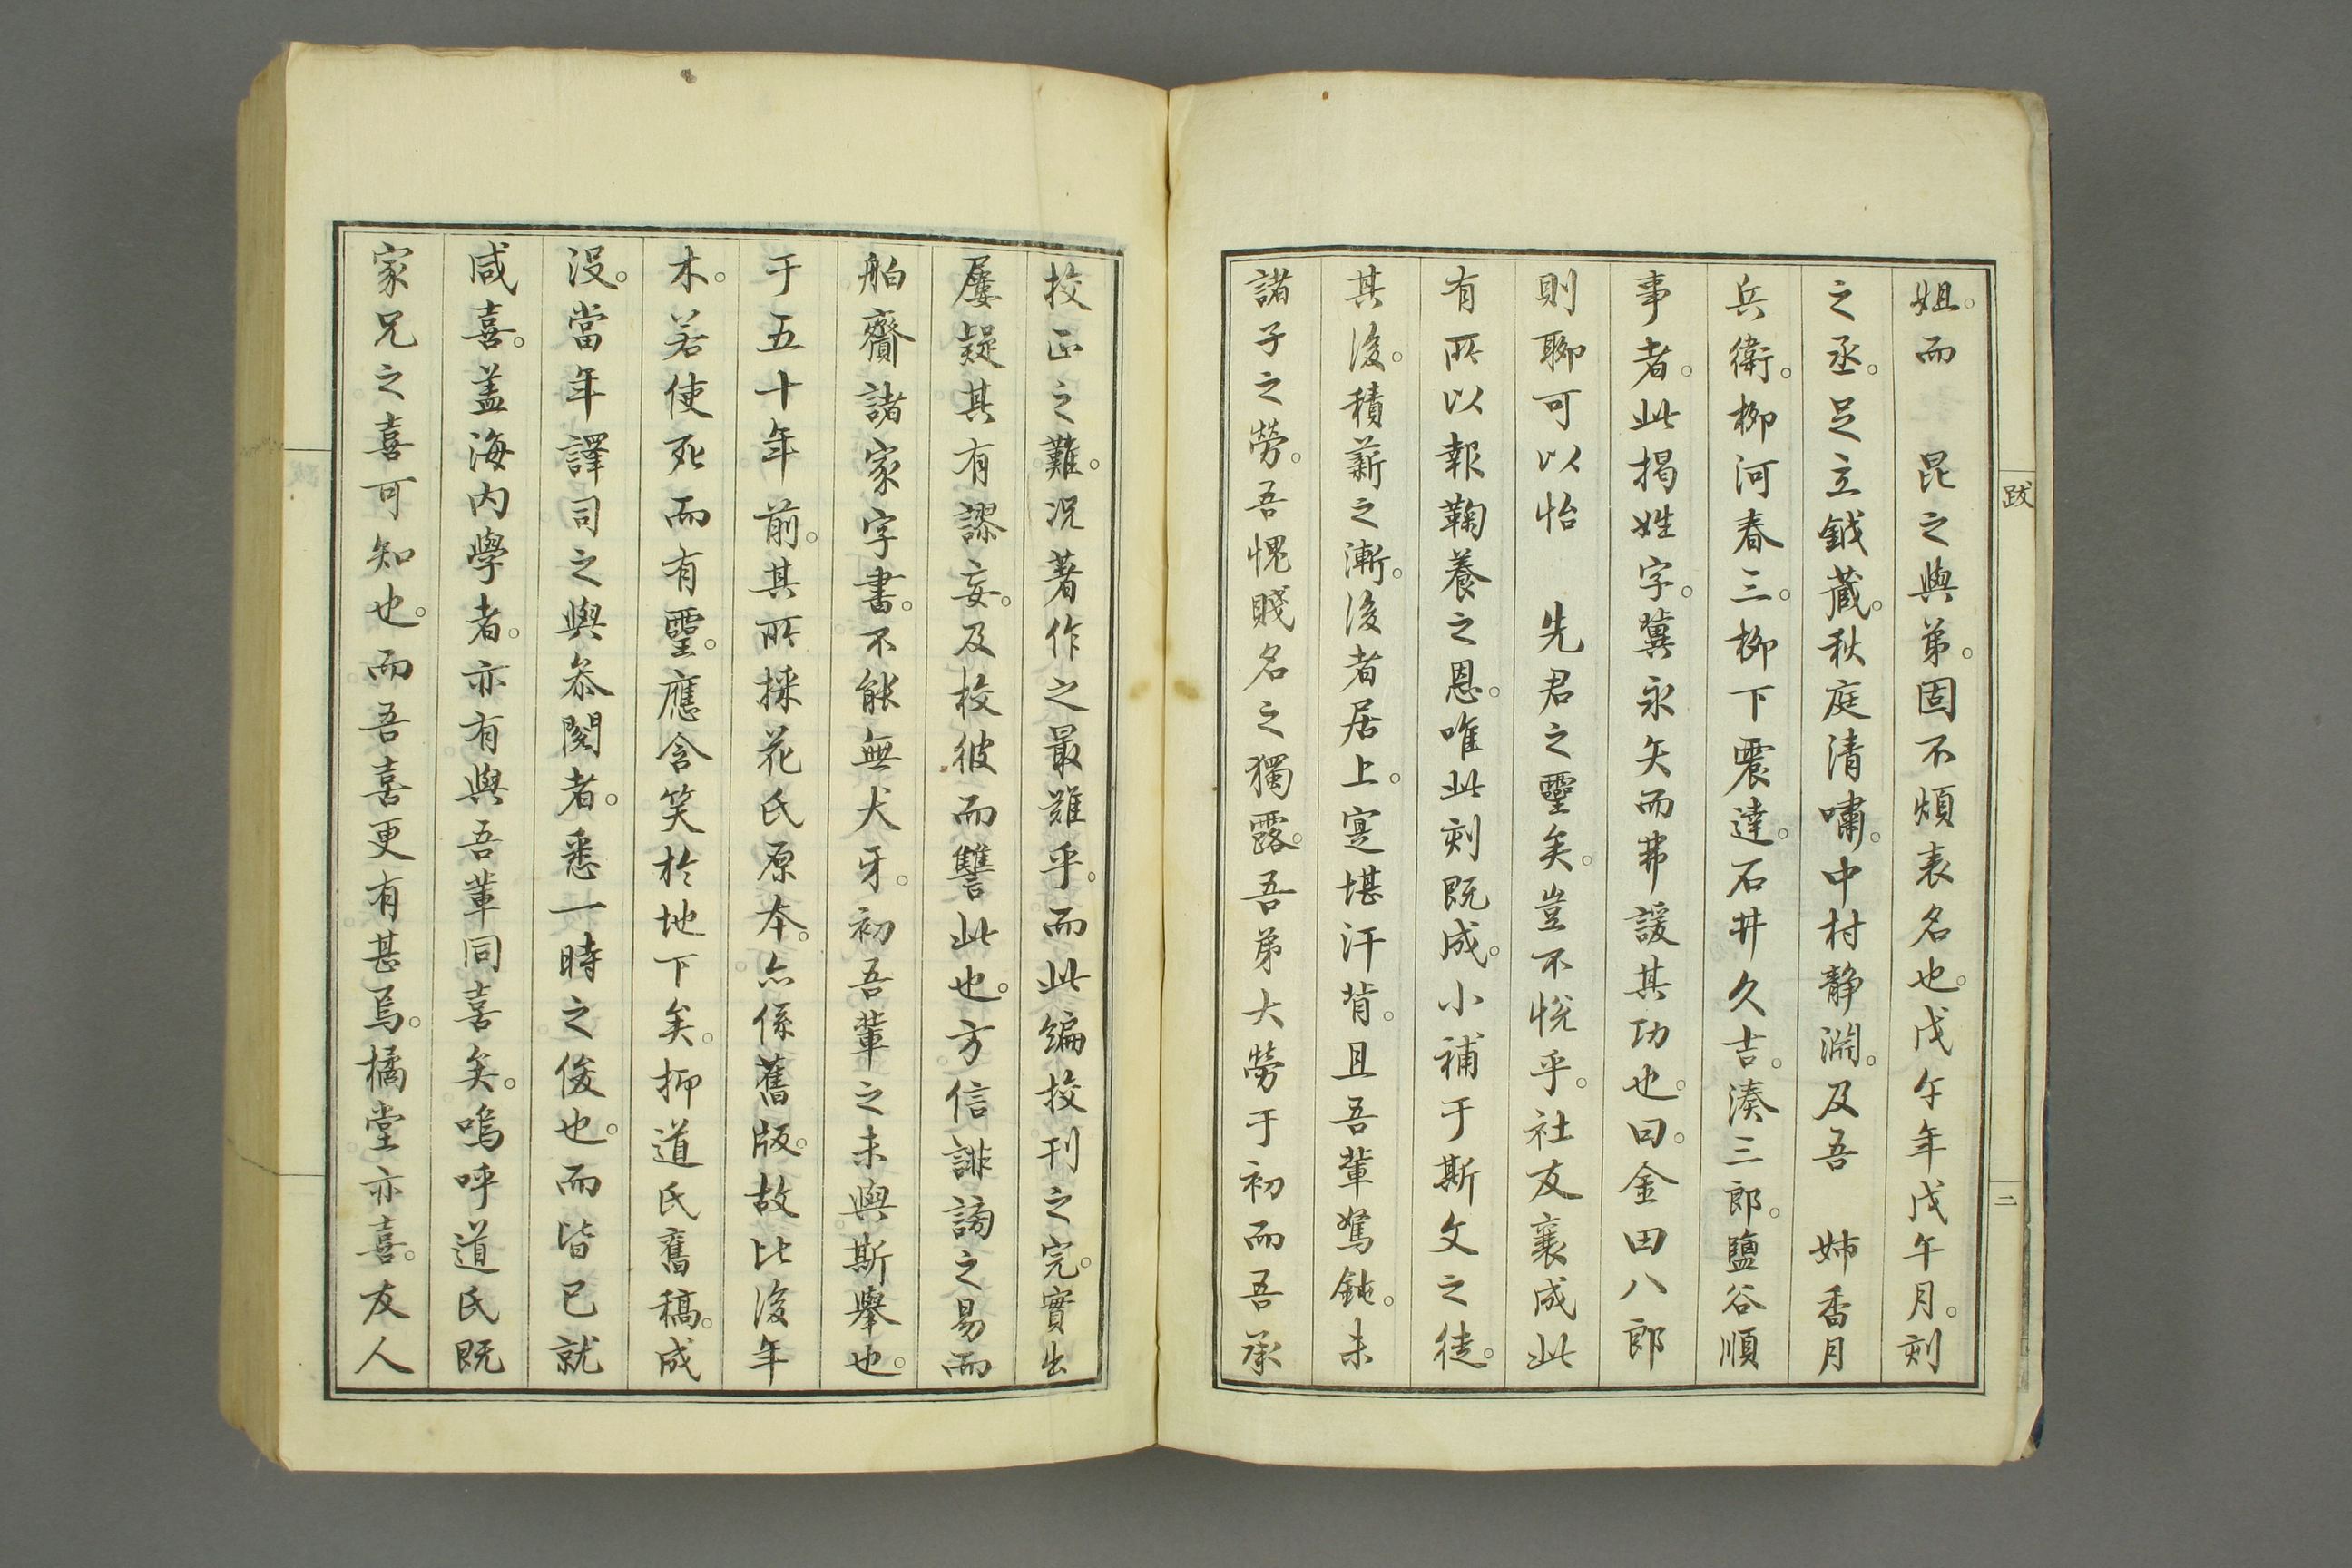 跋
二
姐。而　昆之與弟。固不煩表名也。戊午年戊午月。刻
之丞。足立鉞藏。秋庭清嘯。中村靜淵。及吾　姉香月
兵衛。柳河春三。柳下震達。石井久吉。湊三郎。鹽谷順
事者。此揭姓字。冀永矢而弗諼其功也。曰。金田八郎
則聊可以怡　先君之靈矣。豈不悅乎。社友襄成此
有所以報鞠養之恩。唯此刻既成。小補于斯文之徒。
其後。積薪之漸。後者居上。寔堪汗背。且吾輩駑鈍。未
諸子之勞。吾愧賤名之獨露。吾弟大勞于初而吾承
挍正之難。況著作之最難乎。而此編挍刊之完。實出
屢疑其有謬妄。及校彼而讐此也。方信誹謗之易而
舶齎諸家字書。不能無犬牙。初吾輩之未與斯舉也。
于五十年前。其所採花氏原本。亦係舊版。故比後年
木。若使死而有靈。應含笑於地下矣。抑道氏舊稿。成
沒。當年譯司之與叅閱者。悉一時之俊也。而皆已就
咸喜。盖海内學者。亦有與吾輩同喜矣。嗚呼道氏既
家兄之喜可知也。而吾喜更有甚焉。橘堂亦喜。友人